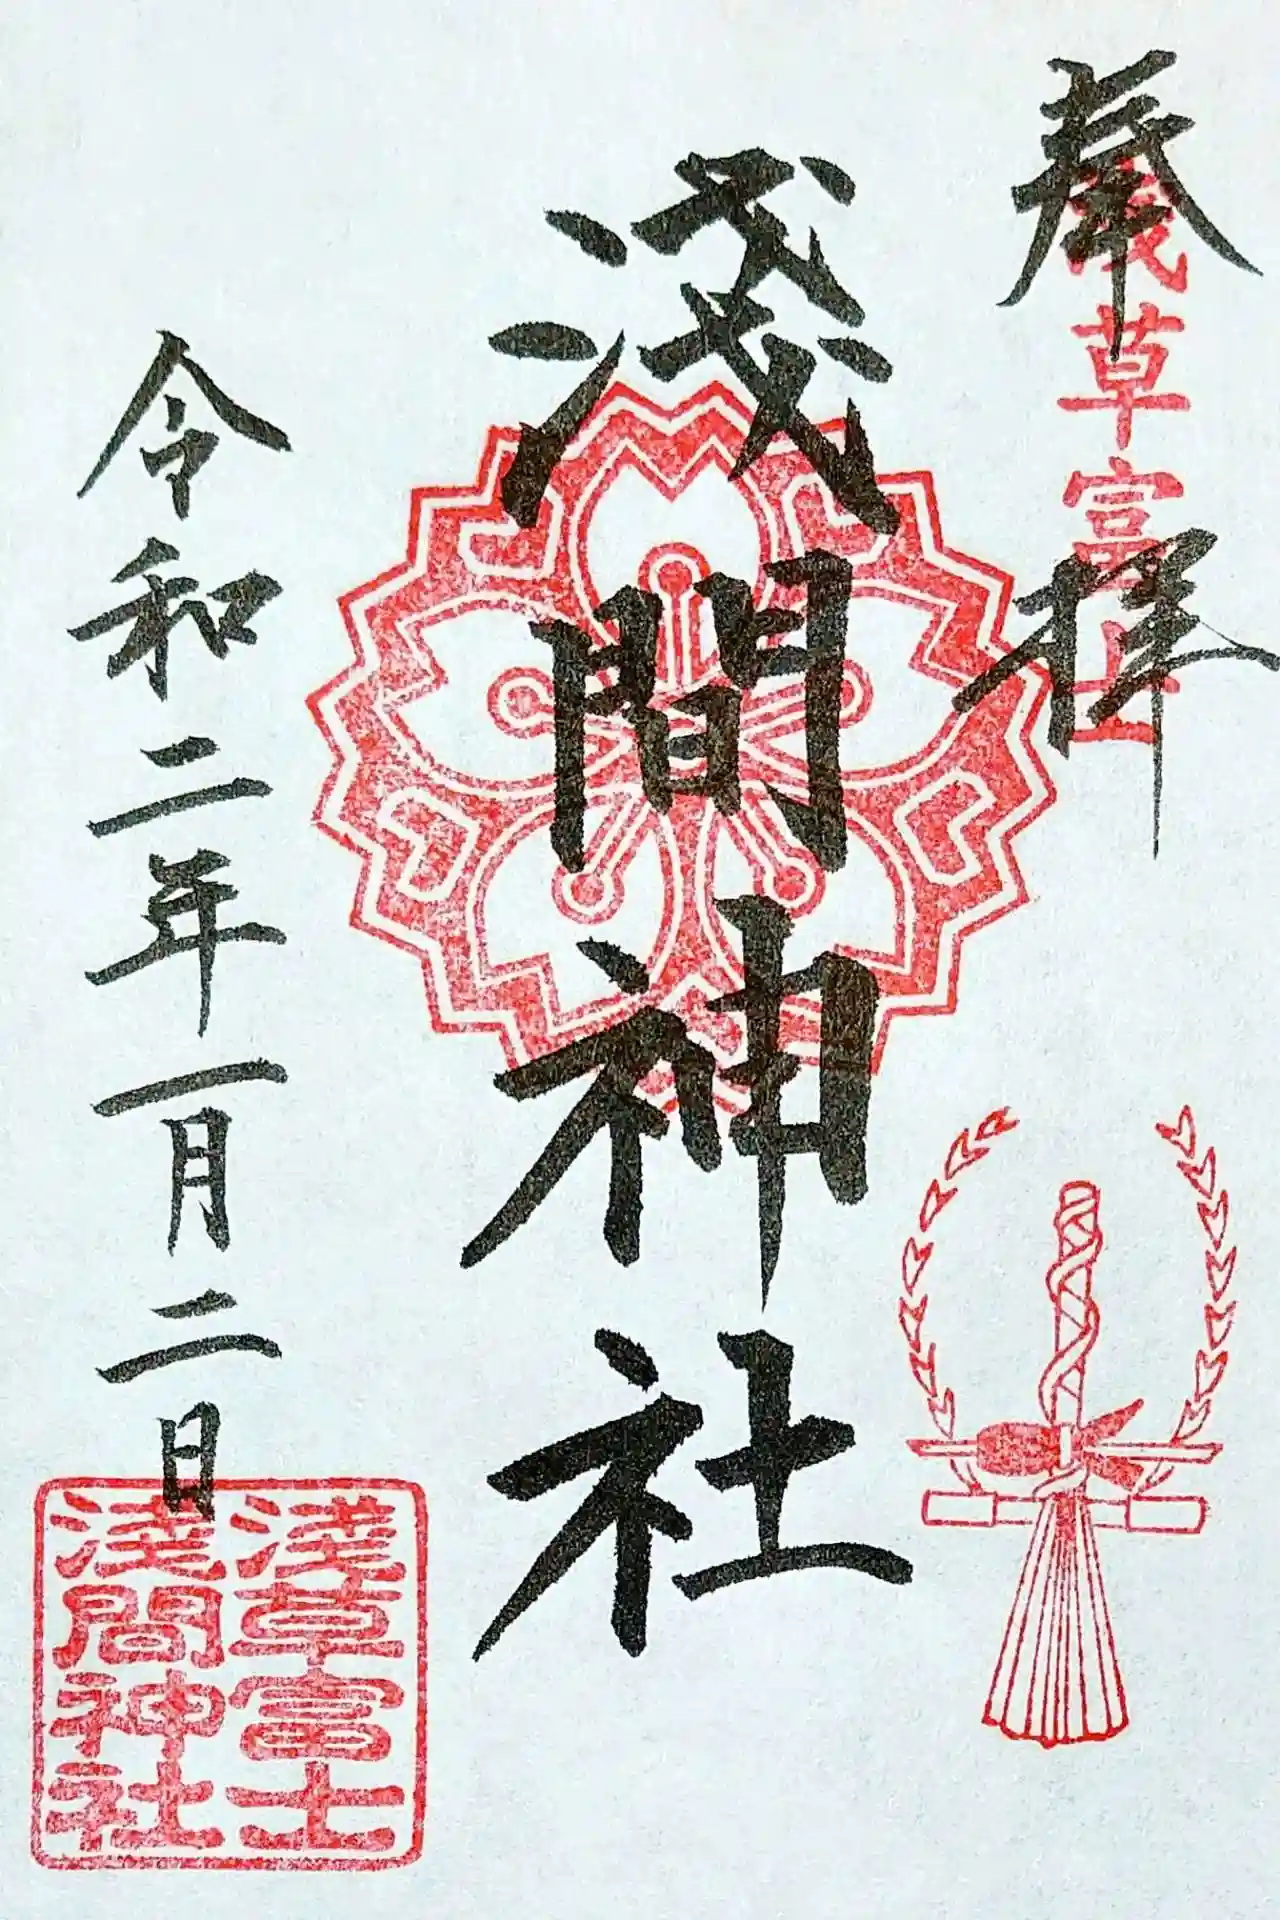 奉拝
浅草富士
淺間神社
令和二年一月二日
淺草富士
淺間神社